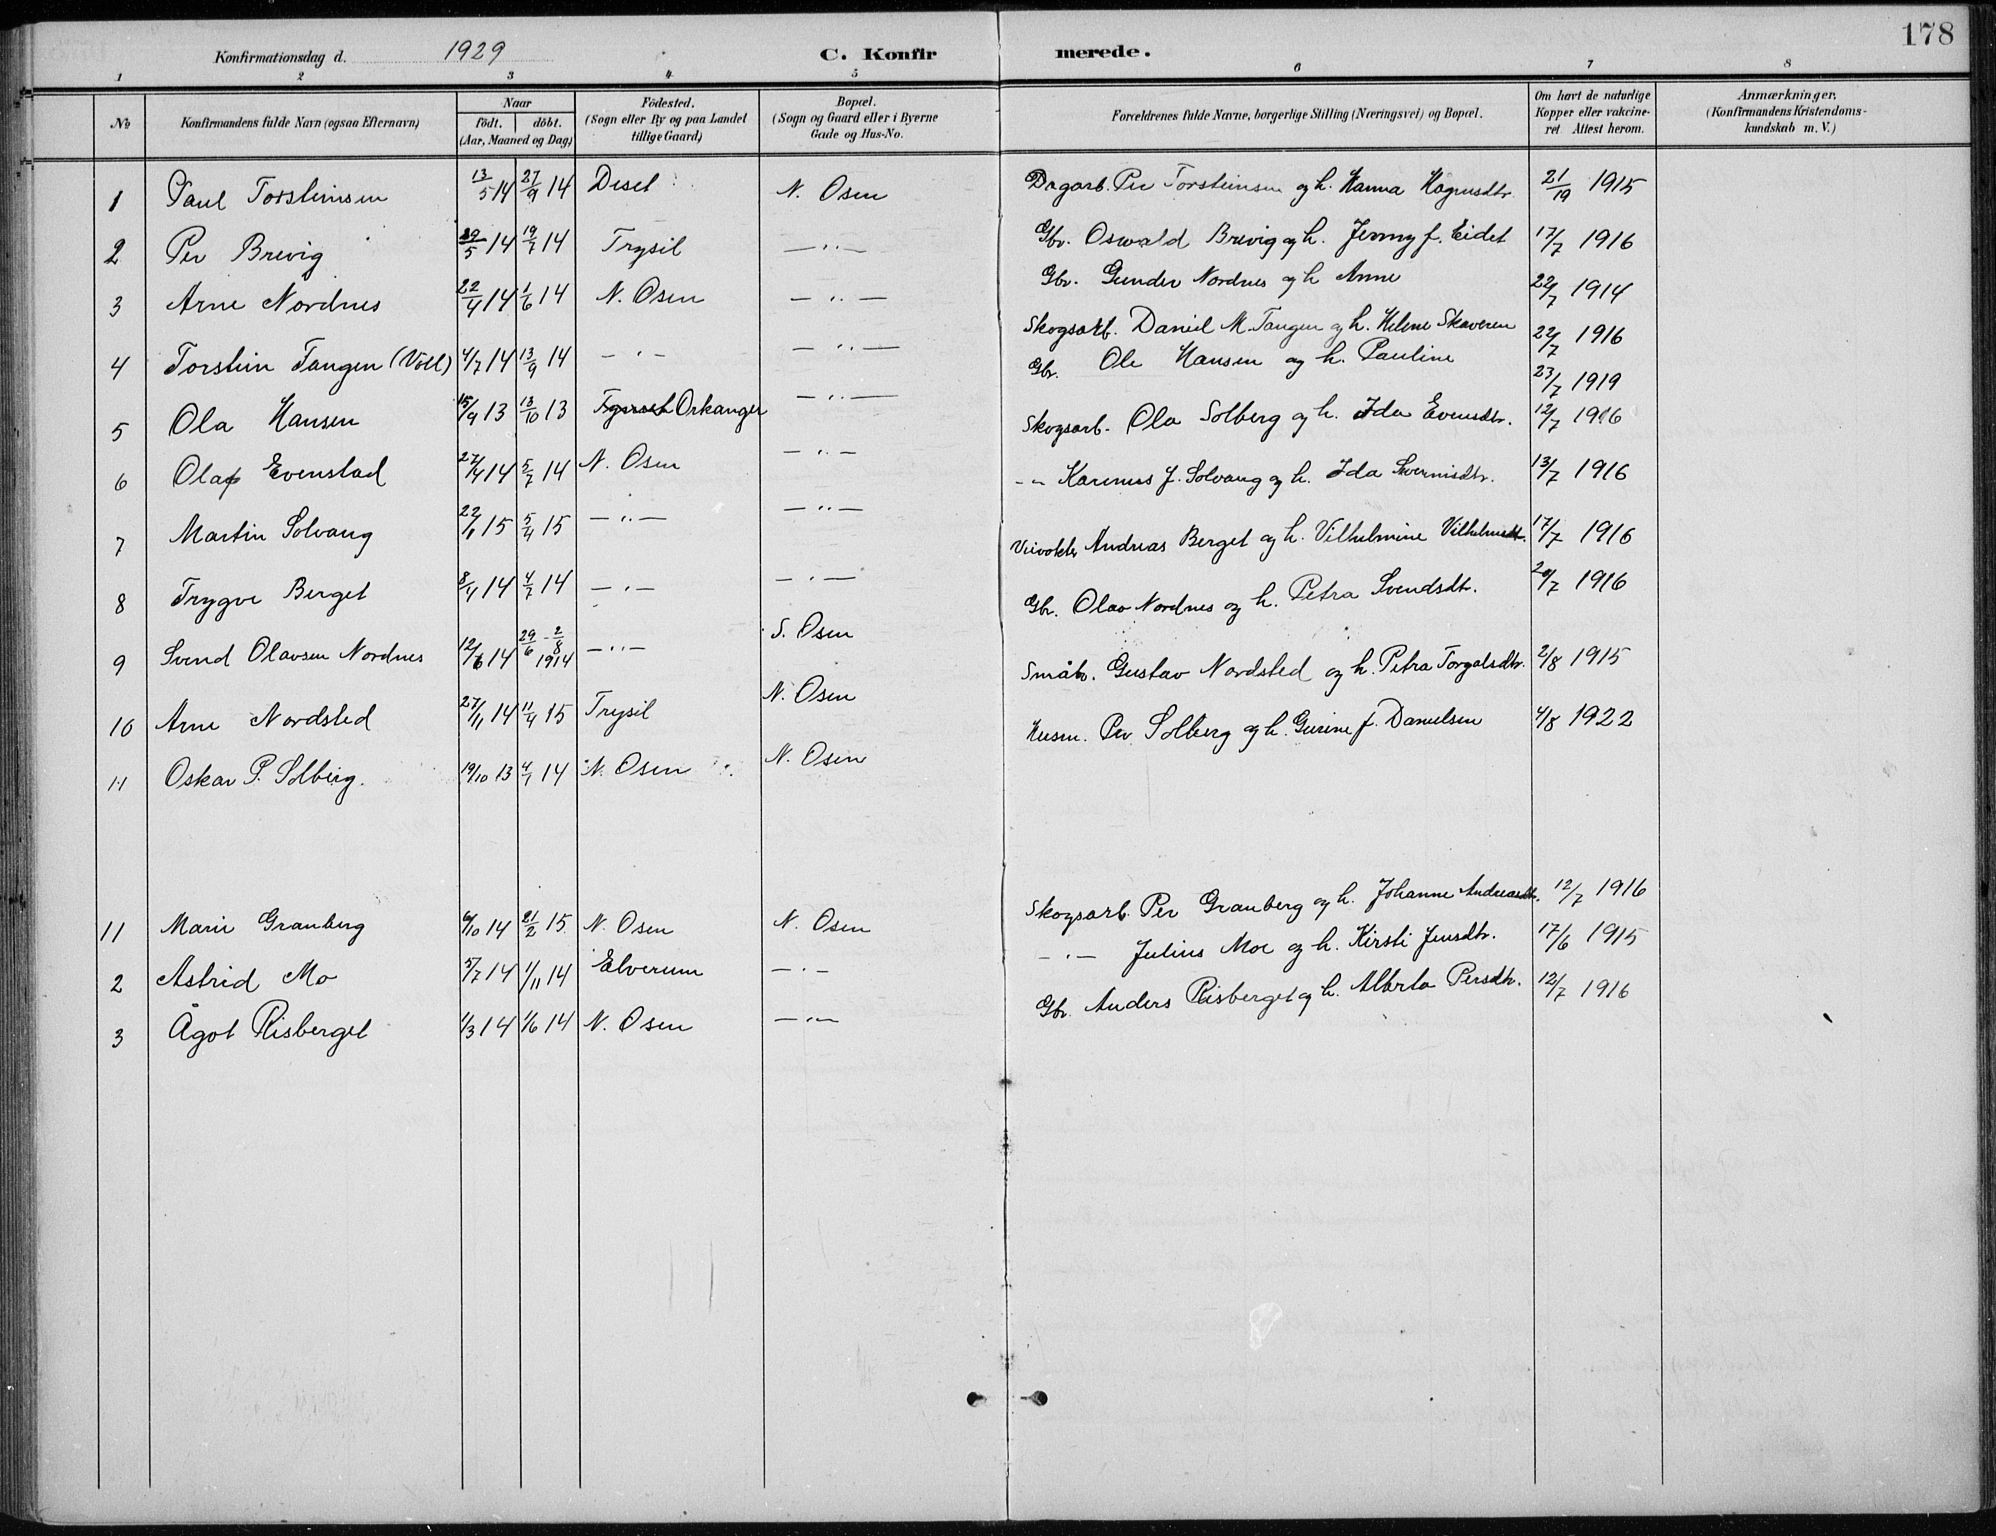 178
Konfirmationsdag d. 1929 C. Konfir merede.
1 2 3 4 5 6 7 8
№ Konfirmandens fulde Navn (ogsaa Efternavn) Naar födt. döbt. (Aar, Maaned og Dag) Födested. (Sogn eller By og paa Landet tillige Gaard) Bopæl. (Sogn og Gaard eller i Byerne Gade og Hus-No. Forældrenes fulde Navne, borgerlige Stilling (Næringsvei) og Bopæl. Om havt de naturlige Kopper eller vakcine- ret Attest herom. Anmærkninger. (Konfirmandens Kristendoms- kundskab m. V.)
1 Paul Torsteinsen 13/5 14 27/9 14 Deset N. Osen Dagarb. Per Torsteinsen og h. Hanna Magnusdtr. 21/19 1915
2 Per Brevig 29/5 14 19/7 14 Trysil — " — Gbr. Oswald Brevig og h. Jenny f. Eidet 17/7 1916
3 Arne Nordnes 22/4 14 1/6 14 N. Osen — " — Gbr. Gunder Nordnes og h Anne 22/7 1914
4 Torstein Tangen (Voll) 4/7 14 13/9 14 — " — — " — Skogsarb. Daniel M. Tangen og h. Helene Skaveren 22/7 1916
5 Ola Hansen 15/9 13 13/10 13 Orkanger — " — Gbr. Ole Hansen og h. Pauline 23/7 1919
6 Olaf Evenstad 27/4 14 5/7 14 N. Osen — " — Skogsarb. Ola Solberg og h. Ida Evensdtr. 12/7 1916
7 Martin Solvang 22/1 15 5/4 15 — " — — " — - " - Karenus J. Solvang og h. Ida 13/7 1916
8 Trygve Berget 8/4 14 4/7 14 — " — — " — Veivokter Andreas Berget og h. Vilhelmine Vilhelmsdtr. 17/7 1916
9 Svend Olavsen Nordnes 12/6 14 29/6 - 2/8 1914 — " — S. Osen Gbr. Olav Nordnes og h. Petra Svendsdtr. 20/7 1916
10 Arne Nordsted 27/11 14 11/4 15 Trysil N. Osen Småbr. Gustav Nordsted og h. Petra Torgalsdtr. 2/8 1915
11 Oskar P. Solberg. 19/10 13 4/1 14 N. Osen N. Osen Husm. Per Solberg og h. Gurine f. Danielsen 4/8 1922
11 Marie Granberg 6/10 14 21/2 15 N. Osen N. Osen Skogsarb. Per Granberg og h. Johanne Andreasdtr. 12/7 1916
2 Astrid Mo 5/7 14 1/11 14 Elverum — " — — " — Julius Moe og h. Kirsti Jensdtr. 17/6 1915
3 Ågot Risberget 1/3 14 1/6 14 N. Osen — " — Gbr. Anders Risberget og h. Alberta Persdtr. 12/7 1916